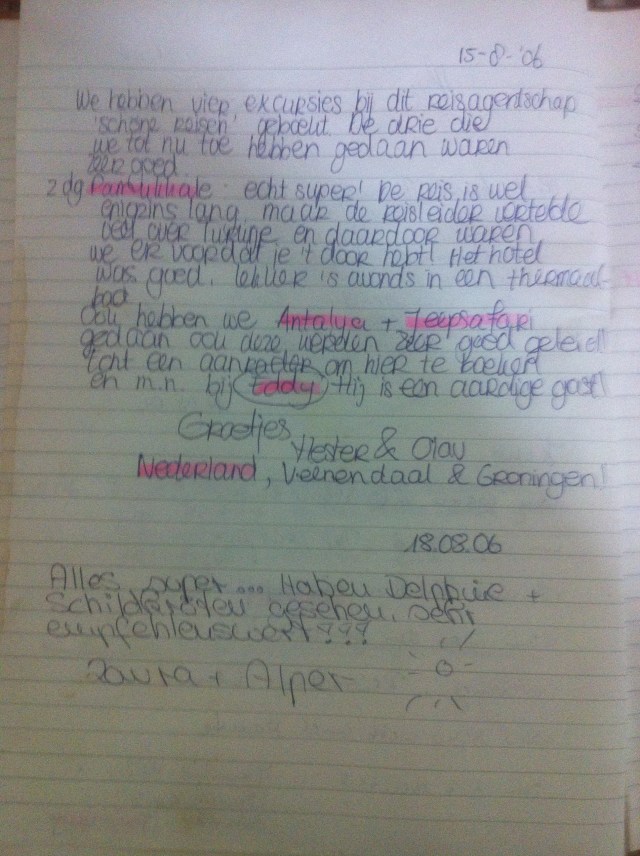 15-8-'06
We hebben vier excursies bij dit reisagentschap
'schöne reisen' geboekt. De drie die
we tot nu toe hebben gedaan waren
zeer goed.
2 dg Pamukkale: echt super! De reis is wel
enigzins lang, maar de reisleider vertelde
veel over Turkije en daardoor waren
we er voordat je 't door hebt! Het hotel
was goed, lekker 's avonds in een thermaal-
bad.
Ook hebben we Antalya + Jeepsafari
gedaan ook deze werden zeer goed geleid!
Echt een aanrader om hier te boeken
en m.n. bij Eddy. Hij is een aardige gast!
Groetjes
Hester & Olav
Nederland, Veenendaal & Groningen!
18.08.06
Alles super... Haben Delphine +
Schildkröten gesehen. Sehr
empfehlenswert???
Laura + Alper